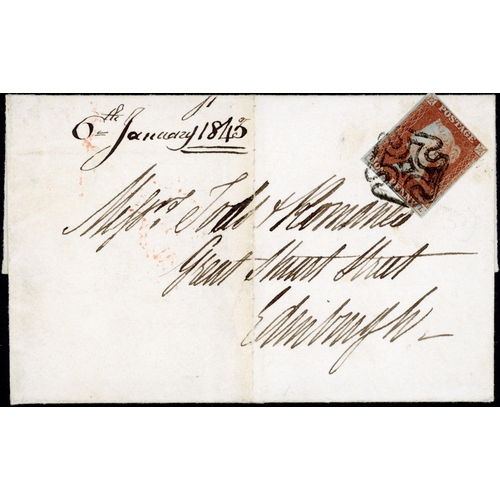 6th January 1843
POSTAGE
Messrs Todd & Romanes
Great Stuart Street
Edinburgh